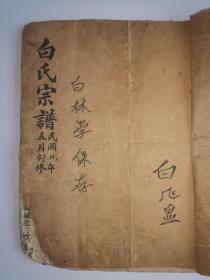 白氏宗譜
民國卅年
五月創修
白林学保存
白恩显